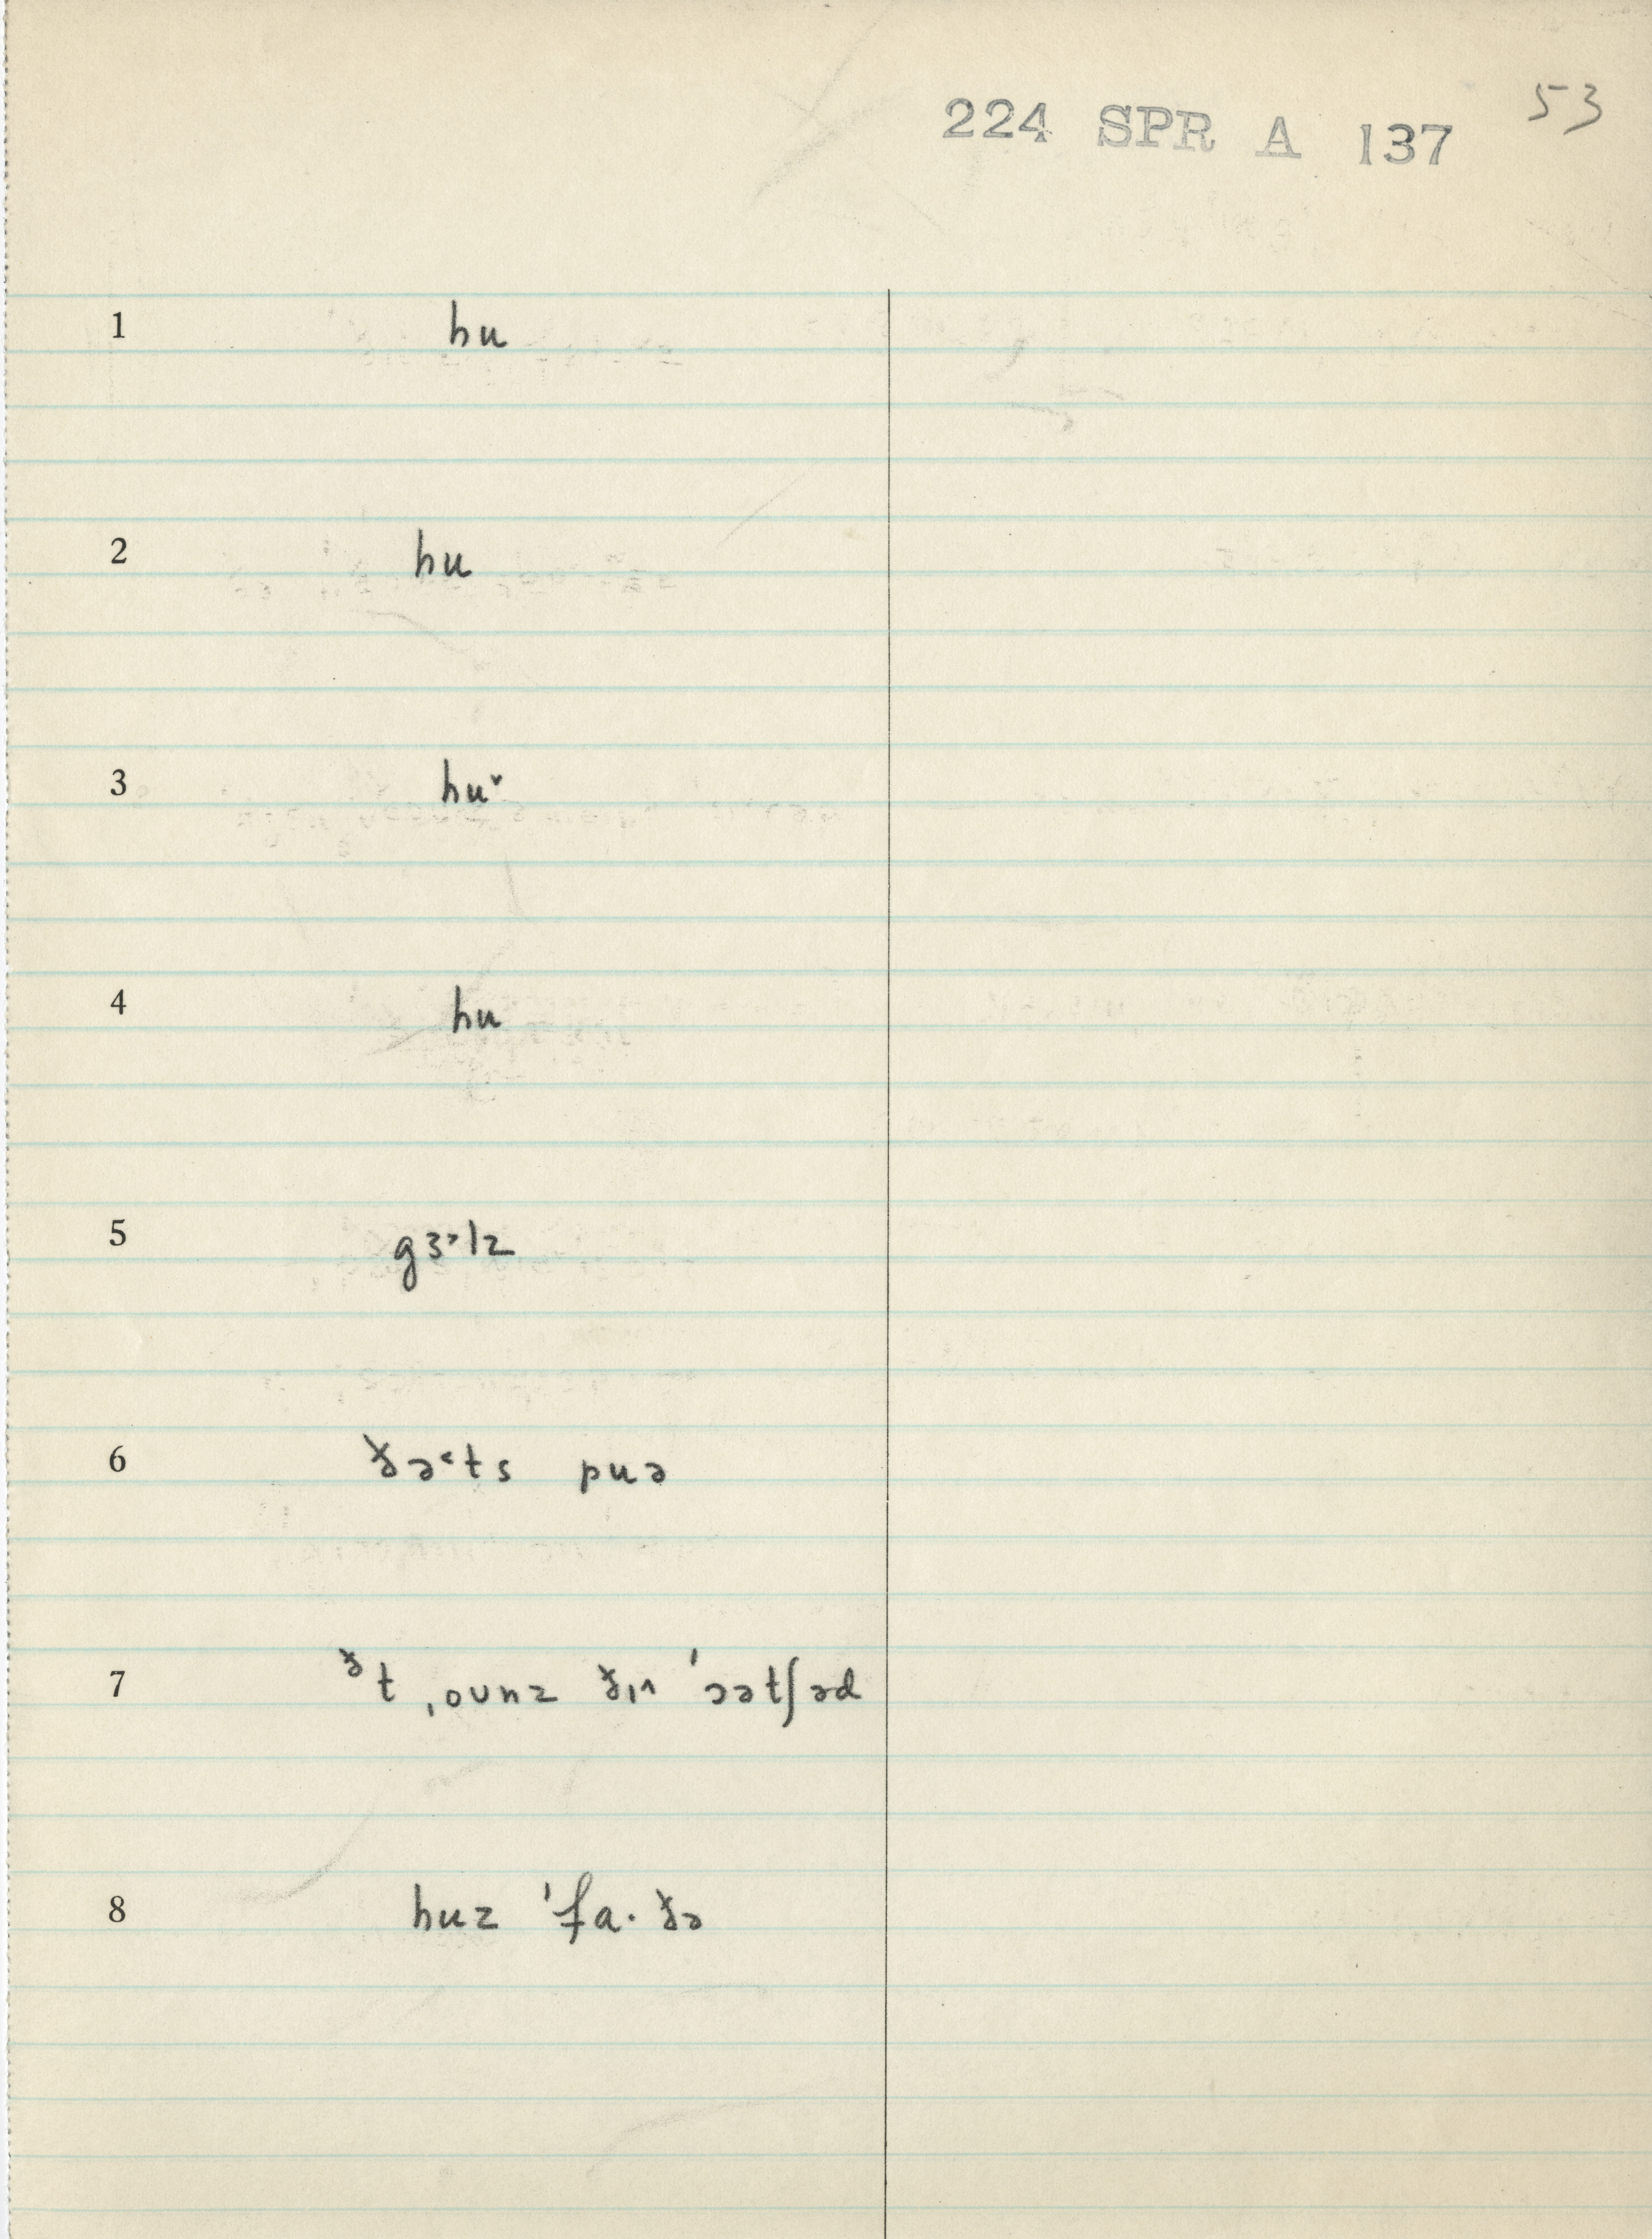 224 SPR A 137 53
1 hu
2 hu
3 huˇ
4 hu
5 gɜ˃lz
6 ðə˂ts puə
7 ðt ˌounz ðɪ^ ˈɔətʃəd
8 huz ˈfa· ðə